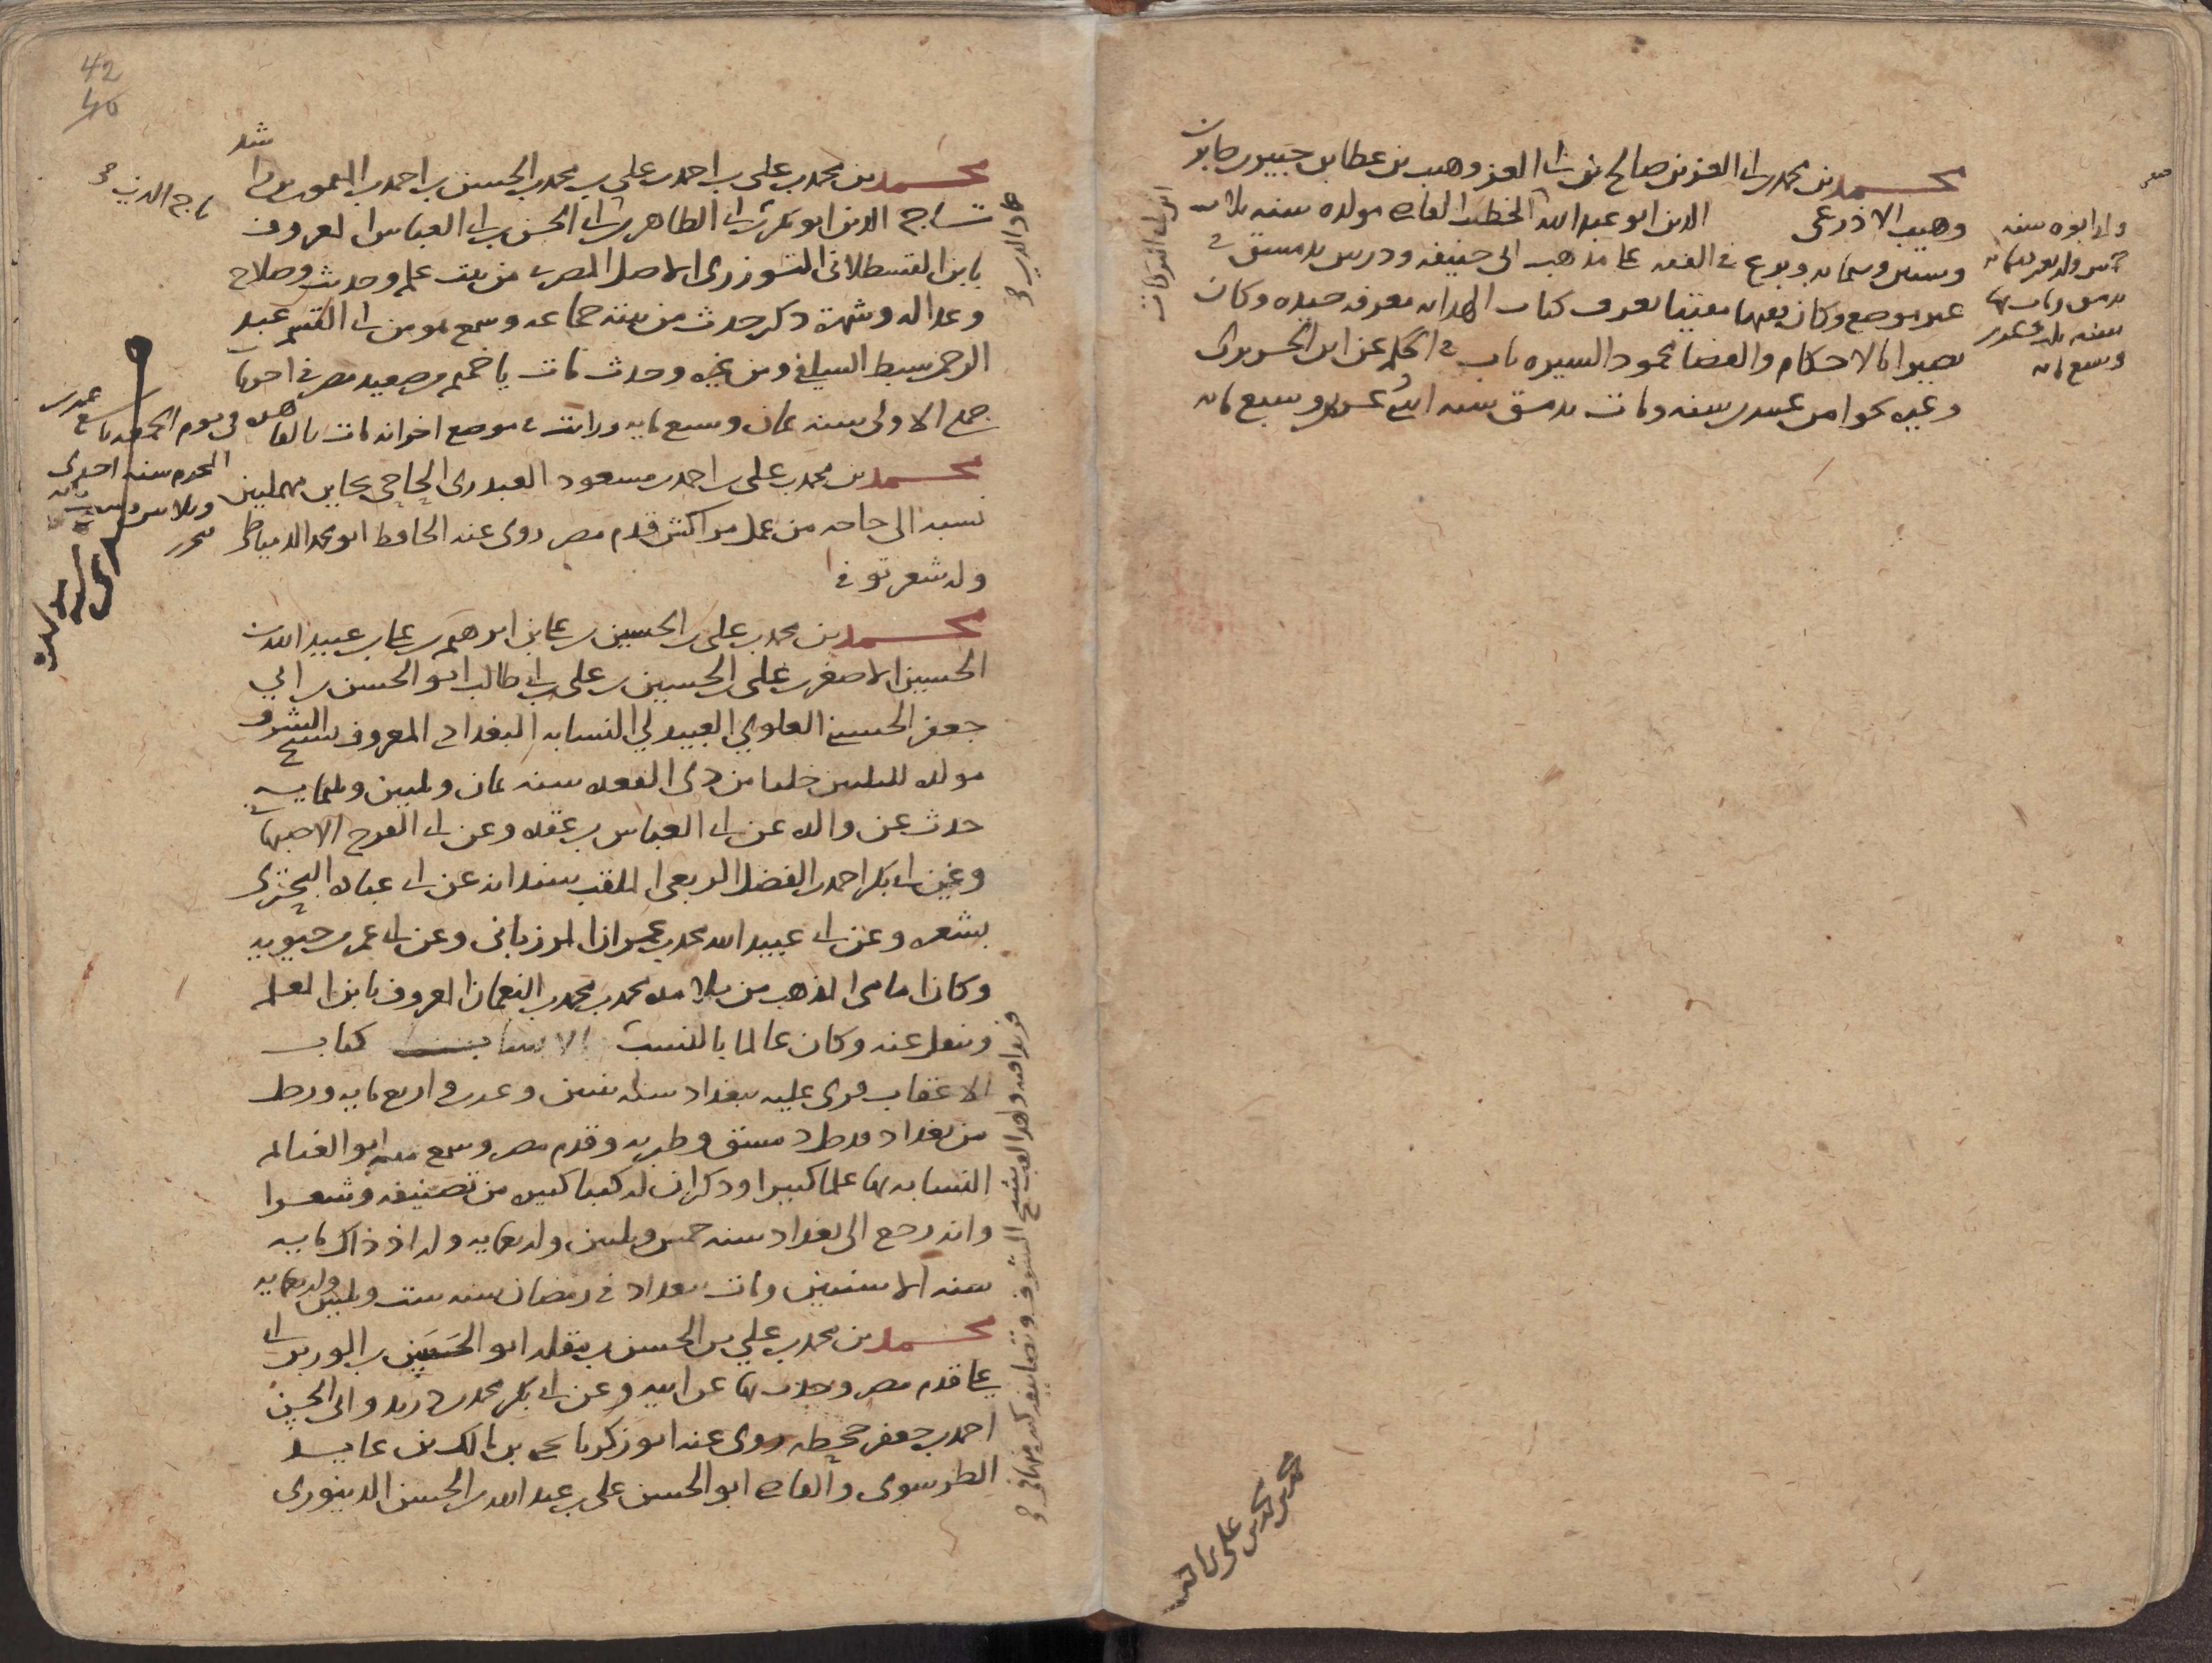 محمد بن محمد بن ابي العز بن صالح بن ابي العز وهيب بن عطا بن جبير بن جابر بن
وهيب الاذرعي الدين ابو عبد الله الخطيب القاضي مولده سنه ثلاث
وستين وستمايه وبرع في الفقه على مذهب ابي حنيفه ودرس بدمشق في
غير موضع وكان فقيها مفتيا يعرف كتاب الهدايه معرفه جيده وكان
بصيرا بالاحكام والقضا محمود السيره ناب في الحكم عن ابن الحريري
وغيره نحوا من عشرين سنه ومات بدمشق سنه اثنين وعشرين وسبع مايه
ابن ابي البركات
محمد بن محمد بن علي بن احمد
42
40
محمد بن محمد بن علي بن احمد بن علي بن محمد بن الحسين بن احمد بن الميمون بن راشد
تاج الدين ابو بكر بن ابي الطاهر بن ابي الحسن بن ابي العباس المعروف
بابن القسطلاني التوزري الاصل المصري من بيت علم وحديث وصلاح
وعداله وشهرة ذكر حدث من بيته جماعه وسمع هو من ابي القسم عبد
الرحمن سبط السلفي ومن غيره وحدث مات باخميم من صعيد مصر في احدى
جمادى الاولى سنه ثمان وسبع مايه ورايت في موضع اخر انه مات بالقاهره في يوم الجمعه تاسع عشر
المحرم سنه احدى
تاج الدين
عماد الدين
محمد بن محمد بن علي بن احمد بن مسعود العبدري الحاحي بحاين مهملتين
نسبه الى حاحه من عمل مراكش قدم مصر روى عنه الحافظ ابو محمد الدمياطي
وله شعر توفي
محمد بن محمد بن علي بن الحسين بن علي بن ابرهيم بن علي بن عبيد الله بن
الحسين الاصغر بن علي بن الحسين بن علي بن ابي طالب ابو الحسن بن ابي
جعفر الحسيني العلوي العبيدلي النسابه البغدادي المعروف بشيخ الشرف
مولده لليلتين خلتا من ذي القعده سنه ثمان وثلثين وثلثمايه
حدث عن والده عن ابي العباس بن عقده وعن ابي الفرج الاصبهاني
وعن ابي بكر احمد بن الفضل الربعي الملقب سندانه عن ابي عباده البحتري
بشعره وعن ابي عبيد الله محمد بن عمران المرزباني وعن ابي عمر بن حيويه
وكان امامي المذهب من تلامذه محمد بن محمد بن النعمان المعروف بابن المعلم
ونقل عنه وكان عالما بالنسب كتاب
الاعقاب قرى عليه ببغداد سنه ثنتين وعشرين واربع مايه ورحل
من بغداد ودخل دمشق وطبريه وقدم مصر وسمع منه ابو الغنائم
النسابه بها علما كبيرا وذكر ان له كتبا كبيره من تصنيفه وشعرا
وانه رجع الى بغداد سنه خمس وثلثين واربعمايه وله اذ ذاك مايه
سنه الا سنتين ومات ببغداد في رمضان سنه ست وثلثين واربعمايه
محمد بن محمد بن علي بن الحسن بن مقله ابو الحسين بن الوزير ابي
علي قدم مصر وحدث بها عن ابيه وعن ابي بكر محمد بن دريد وابي الحسن
احمد بن جعفر جحظه روى عنه ابو زكريا يحيى بن مالك بن عايذ
الطرسوسي والقاضي ابو الحسن علي بن عبد الله بن الحسن الدينوري